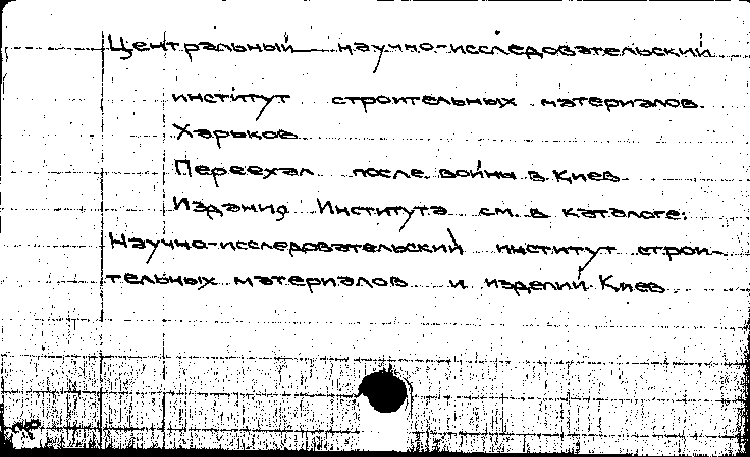 Центральный научно-исследовательский
институт строительных материалов.
Харьков
Переехал после войны в Киев
Издания Института см. в каталоге:
Научно-исследовательский институт строи-
тельных материалов и изделий. Киев